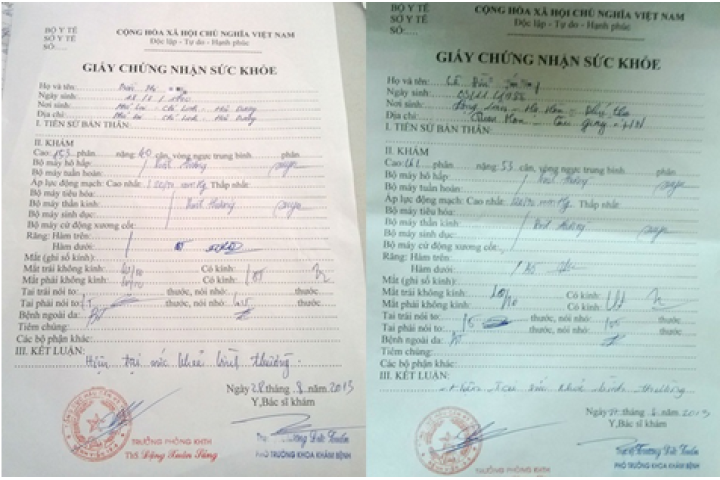 BỘ Y TẾ
SỞ Y TẾ
SỐ:....
CỘNG HÒA XÃ HỘI CHỦ NGHĨA VIỆT NAM
Độc lập - Tự do - Hạnh phúc
GIẤY CHỨNG NHẬN SỨC KHỎE
Họ và tên:
Ngày sinh:
Nơi sinh: - Chí Linh - Hải Dương
Địa chỉ: - Chí Linh - Hải Dương
I. TIỀN SỬ BẢN THÂN:
II. KHÁM
Cao: 153 phân nặng: 40 cân, vòng ngực trung bình phân
Bộ máy hô hấp: Bình thường
Bộ máy tuần hoàn:
Áp lực động mạch: Cao nhất 120/70 mmHg Thấp nhất
Bộ máy tiêu hóa:
Bộ máy thần kinh: Bình thường
Bộ máy sinh dục:
Bộ máy cử động xương cốt:
Răng: Hàm trên:
Hàm dưới: BT
Mắt (ghi số kính):
Mắt trái không kính: 10/10 Có kính:
Mắt phải không kính: 10/10 Có kính:
Tai trái nói to: thước, nói nhỏ: thước
Tai phải nói to: 5 thước, nói nhỏ: thước
Bệnh ngoài da: BT
Tiêm chủng:
Các bộ phận khác:
III. KẾT LUẬN:
Hiện tại sức khoẻ bình thường.
Ngày 28 tháng 8 năm 2013
Y,Bác sĩ khám
TRƯỞNG PHÒNG KHTH
ThS. Đặng Xuân Sáng
Trương Đức Tuấn
PHÓ TRƯỞNG KHOA KHÁM BỆNH
BỘ Y TẾ
SỞ Y TẾ
SỐ:....
CỘNG HÒA XÃ HỘI CHỦ NGHĨA VIỆT NAM
Độc lập - Tự do - Hạnh phúc
GIẤY CHỨNG NHẬN SỨC KHỎE
Họ và tên: Lê
Ngày sinh:
Nơi sinh: - Hạ Hòa - Phú Thọ
Địa chỉ: Quan Hoa - Cầu Giấy - HN
I. TIỀN SỬ BẢN THÂN:
II. KHÁM
Cao: 161 phân nặng: 53 cân, vòng ngực trung bình phân
Bộ máy hô hấp: Bình thường
Bộ máy tuần hoàn:
Áp lực động mạch: Cao nhất 120/70 mmHg Thấp nhất
Bộ máy tiêu hóa:
Bộ máy thần kinh: Bình thường
Bộ máy sinh dục:
Bộ máy cử động xương cốt:
Răng: Hàm trên:
Hàm dưới: BT
Mắt (ghi số kính):
Mắt trái không kính: 10/10 Có kính:
Mắt phải không kính: Có kính:
Tai trái nói to: 5 thước, nói nhỏ: thước
Tai phải nói to: thước, nói nhỏ: thước
Bệnh ngoài da: BT
Tiêm chủng:
Các bộ phận khác:
III. KẾT LUẬN:
Hiện tại sức khoẻ bình thường
Ngày tháng 8 năm 2013
Y,Bác sĩ khám
TRƯỞNG PHÒNG KHTH
Trương Đức Tuấn
PHÓ TRƯỞNG KHOA KHÁM BỆNH